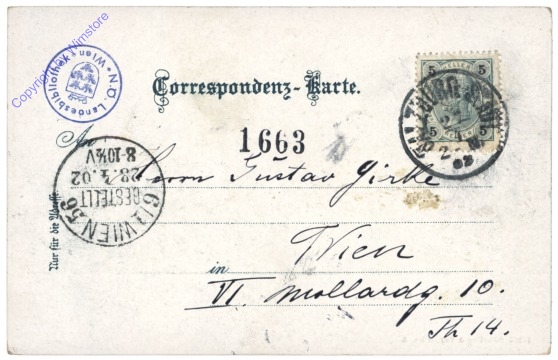 Copyright by Wimstore
N.Ö. Landesbibliothek Wien
Correspondenz-Karte.
5 5
5 5
SALZBURG
An
1663
6/1 WIEN 56
BESTELLT
02
8-10½V
Herrn Gustav Girke
Wien
in
VI. Mollardg. 10.
Th 14.
Nur für die Adresse